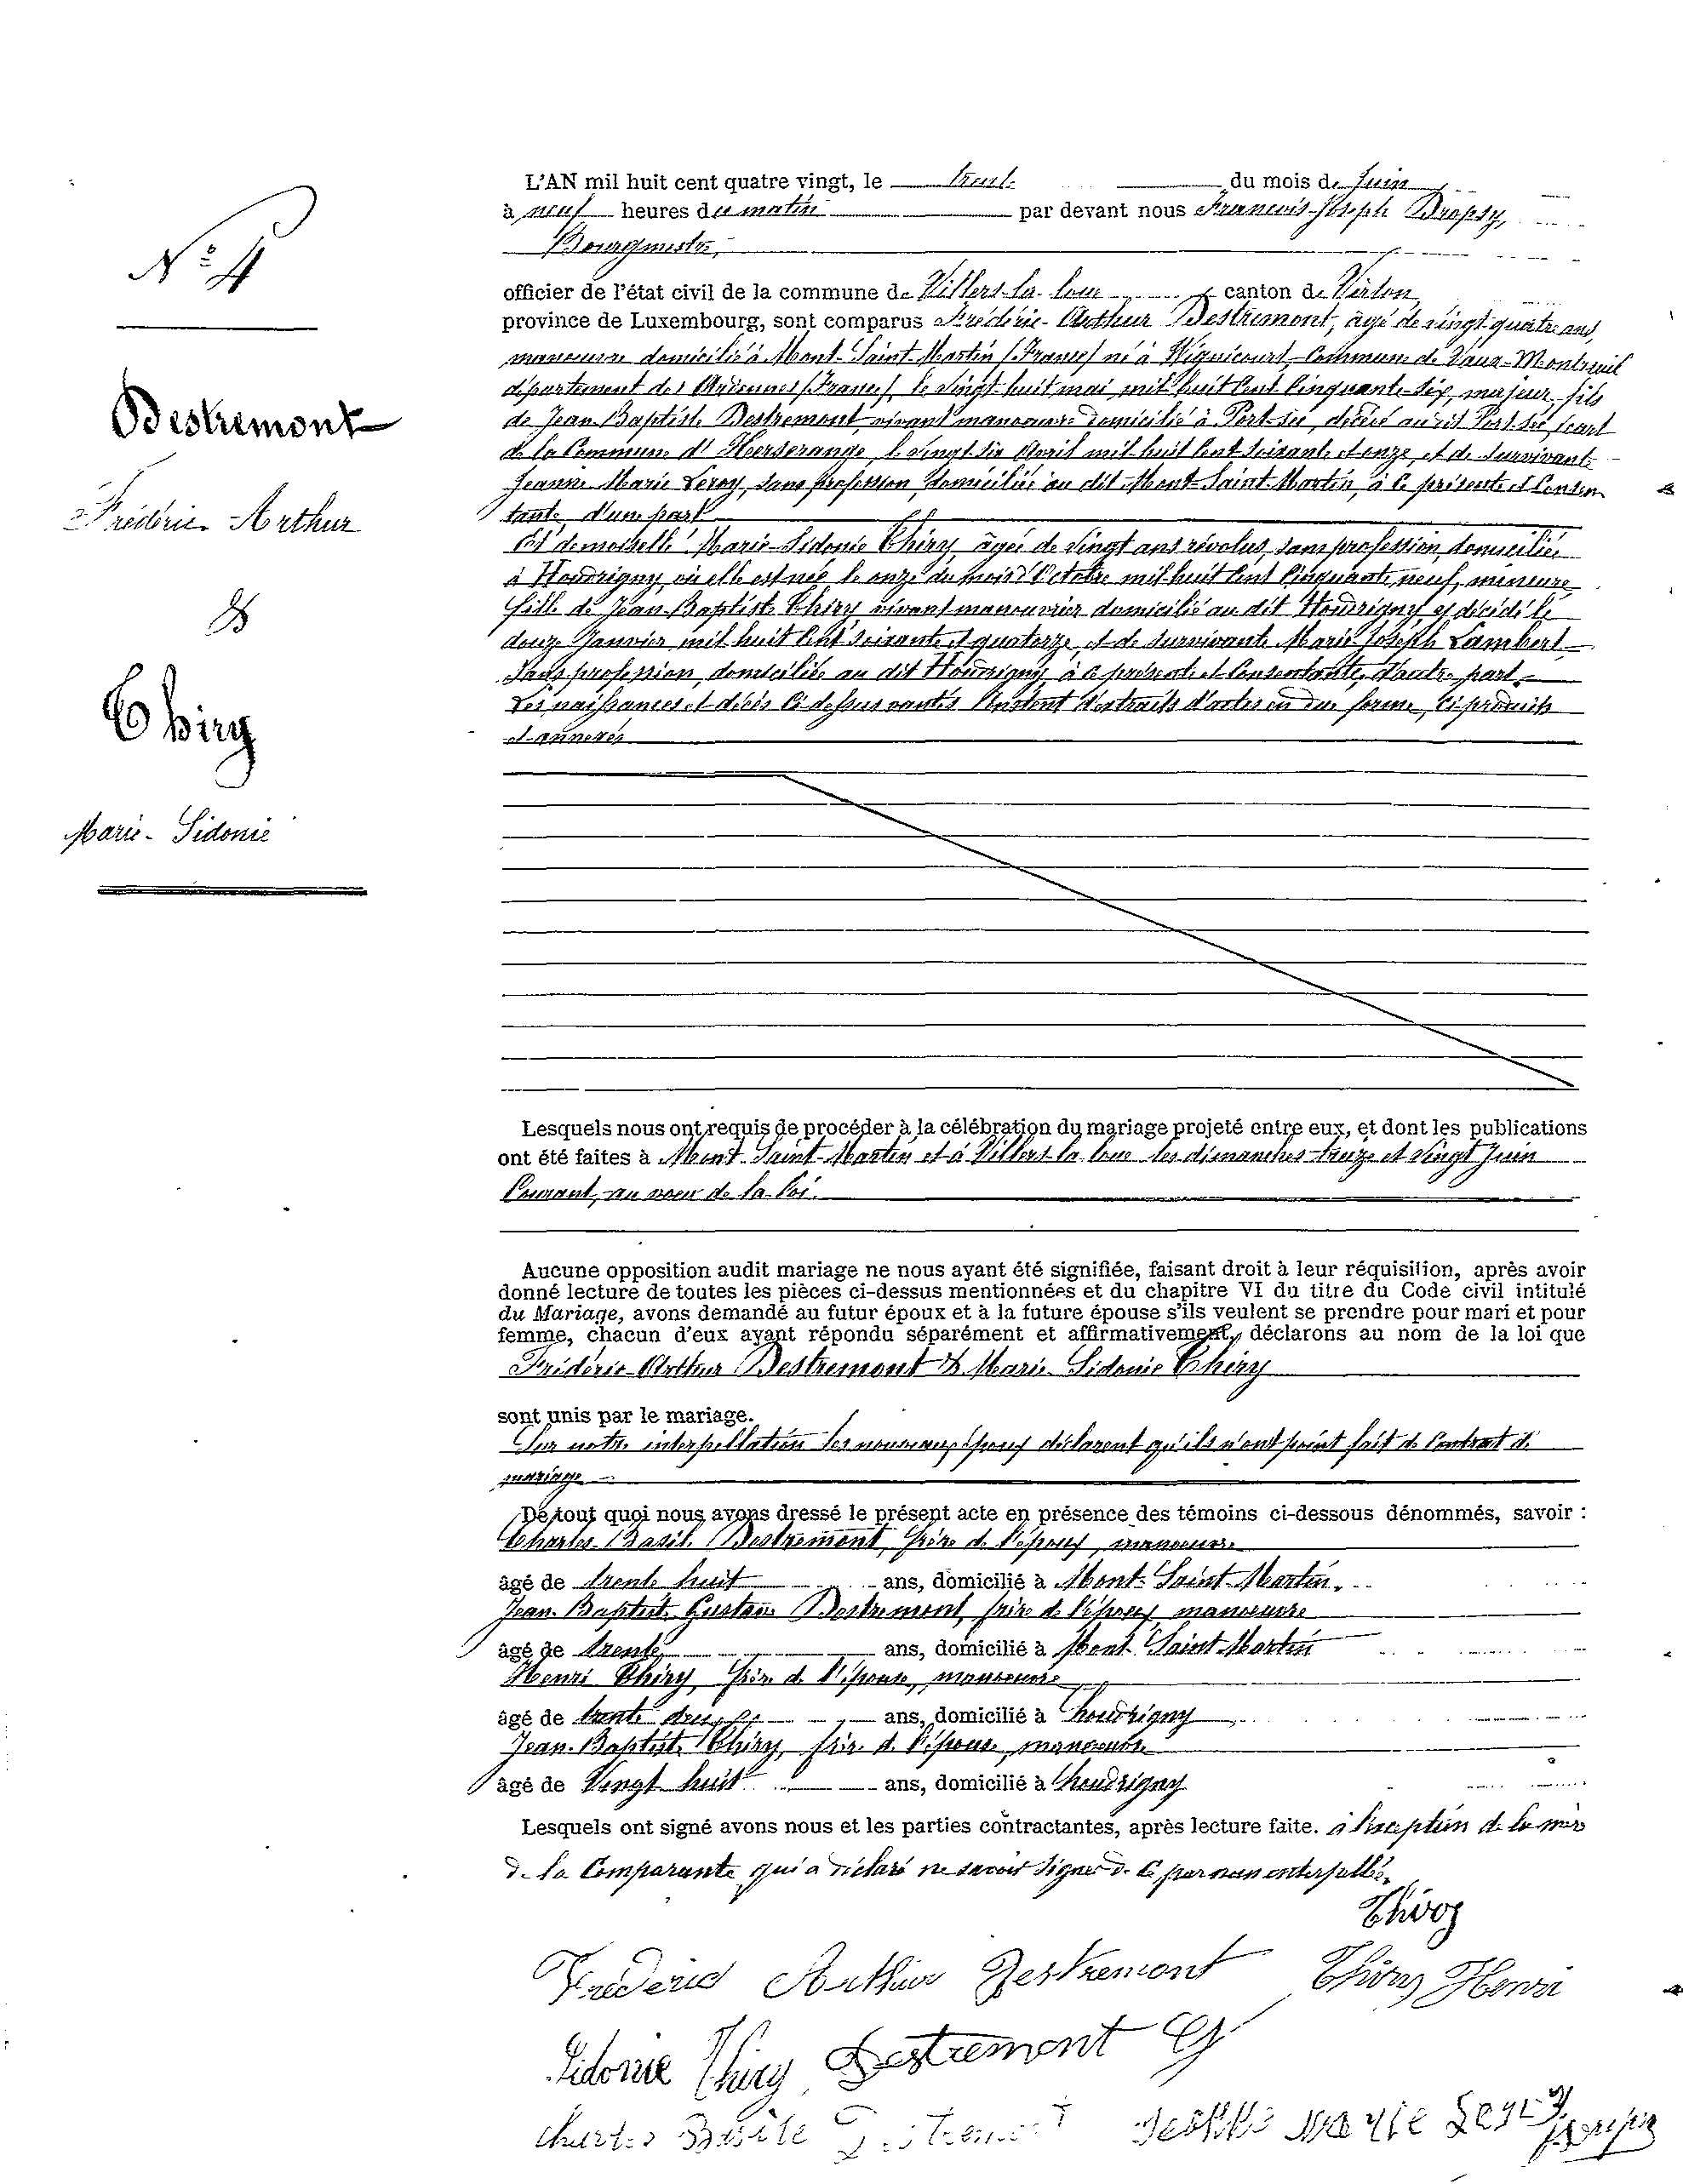 N° 4
Destremont
Frédéric Arthur
&
Thiry
Marie-Sidonie
L'AN mil huit cent quatre vingt, le trente du mois de Juin
à neuf heures du matin par devant nous François-Joseph Dropsy,
Bourgmestre,
officier de l'état civil de la commune de Villers-la-loue canton de Virton,
province de Luxembourg, sont comparus Frédéric-Arthur Destremont, âgé de vingt-quatre ans,
manoeuvre domicilié à Mont-Saint-Martin (France) né à Wignicourt, Commune de Vaux-Montreuil
département des Ardennes (France), le vingt-huit mai mil huit Cent Cinquante-six, majeur, fils
de Jean-Baptiste Destremont, vivant manoeuvre domicilié à Port-sec, décédé au dit Port-sec, écart
de la Commune d'Herserange, le vingt six Avril mil huit Cent soixante et onze, et de survivante
Jeanne Marie Leroy, sans profession, domiciliée au dit Mont-Saint-Martin, à ce présente et Consen
tante, d'une part
Et demoiselle Marie-Sidonie Thiry, âgée de vingt ans révolus, sans profession, domiciliée
à Houdrigny, où elle est née le onze du mois d'Octobre mil huit Cent Cinquante neuf, mineure,
fille de Jean-Baptiste Thiry, vivant manouvrier domicilié au dit Houdrigny, y décédé le
douze Janvier mil huit Cent soixante et quatorze, et de survivante Marie-Joseph Lambert
sans profession, domiciliée au dit Houdrigny, à ce présente et Consentante, d'autre part.
Les naissances et décès Ci-dessus vantés Constent d'extraits d'actes en due forme, Ci-produits
et annexés
Lesquels nous ont requis de procéder à la célébration du mariage projeté entre eux, et dont les publications
ont été faites à Mont-Saint-Martin et à Villers-la-loue les dimanches treize et vingt Juin
Courant, au voeu de la loi.
Aucune opposition audit mariage ne nous ayant été signifiée, faisant droit à leur réquisition, après avoir
donné lecture de toutes les pièces ci-dessus mentionnées et du chapitre VI du titre du Code civil intitulé
du Mariage, avons demandé au futur époux et à la future épouse s'ils veulent se prendre pour mari et pour
femme, chacun d'eux ayant répondu séparément et affirmativement, déclarons au nom de la loi que
Frédéric-Arthur Destremont & Marie-Sidonie Thiry
sont unis par le mariage.
Sur notre interpellation les nouveaux époux déclarent qu'ils n'ont point fait de Contrat de
mariage
De tout quoi nous avons dressé le présent acte en présence des témoins ci-dessous dénommés, savoir :
Charles Basile Destremont, frère de l'époux, manoeuvre
âgé de trente huit ans, domicilié à Mont-Saint-Martin.
Jean-Baptiste Gustave Destremont, frère de l'époux, manoeuvre
âgé de trente ans, domicilié à Mont-Saint-Martin
Henri Thiry, frère de l'épouse, manoeuvre
âgé de trente deux ans, domicilié à Houdrigny
Jean-Baptiste Thiry, frère de l'épouse, manoeuvre
âgé de Vingt huit ans, domicilié à Houdrigny
Lesquels ont signé avons nous et les parties contractantes, après lecture faite. à l'exception de la mère
de la Comparante qui a déclaré ne savoir signer de ce par nous interpellée.
Thiry
Frédéric Arthur Destremont Thiry Henri
Sidonie Thiry Destremont G
Charles Basile Destremont Jeanne Marie Leroy Dropsy